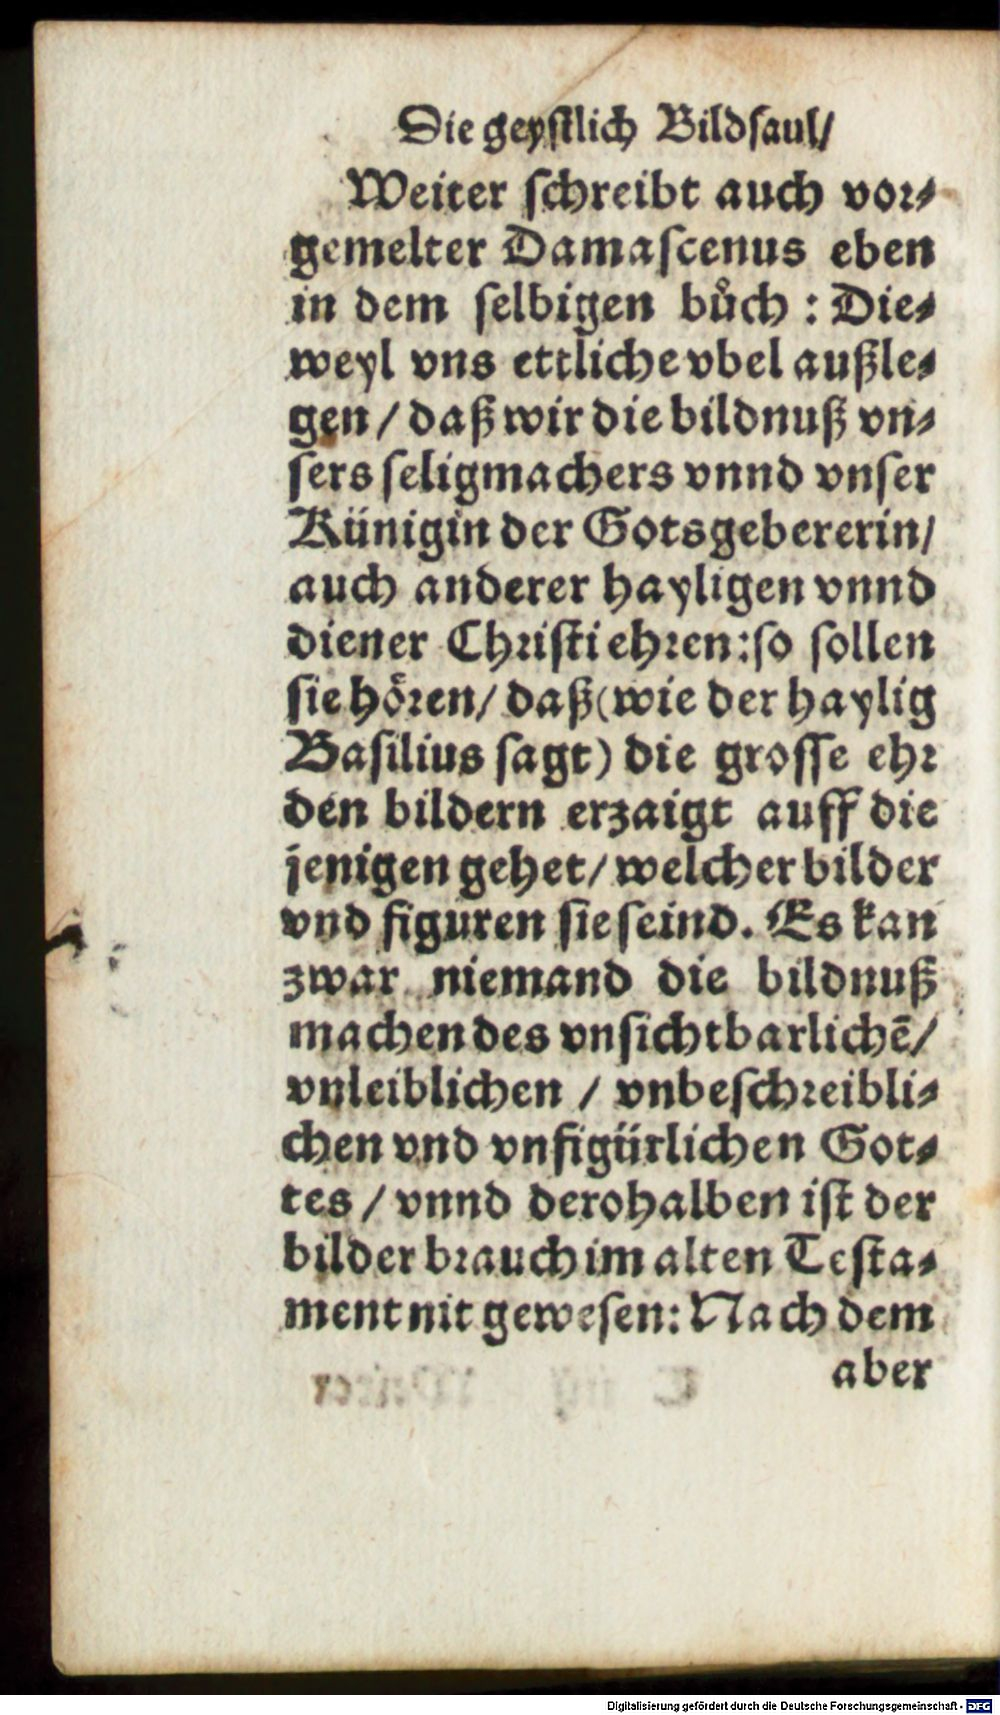 Die geystlich Bildsaul/
Weiter schreibt auch vor⸗
gemelter Damascenus eben
in dem selbigen buͦch : Die⸗
weyl vns ettliche vbel außle⸗
gen / daß wir die bildnuß vn⸗
sers seligmachers vnnd vnser
Künigin der Gotsgebererin/
auch anderer hayligen vnnd
diener Christi ehren: so sollen
sie hoͤren/ daß (wie der haylig
Basilius sagt) die grosse ehr
den bildern erzaigt auff die
jenigen gehet/ welcher bilder
vnd figuren sie seind. Es kan
zwar niemand die bildnuß
machen des vnsichtbarlichē/
vnleiblichen / vnbeschreibli⸗
chen vnd vnfigürlichen Got⸗
tes / vnnd derohalben ist der
bilder brauch im alten Testa⸗
ment nit gewesen: Nach dem
aber
Digitalisierung gefördert durch die Deutsche Forschungsgemeinschaft - DFG